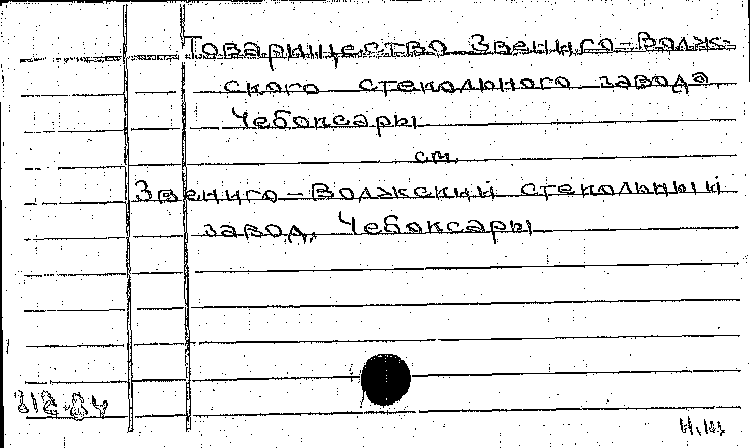 Товарищество Звениго-Волж-
ского стекольного завода,
Чебоксары
см.
Звениго-Волжский стекольный
завод, Чебоксары